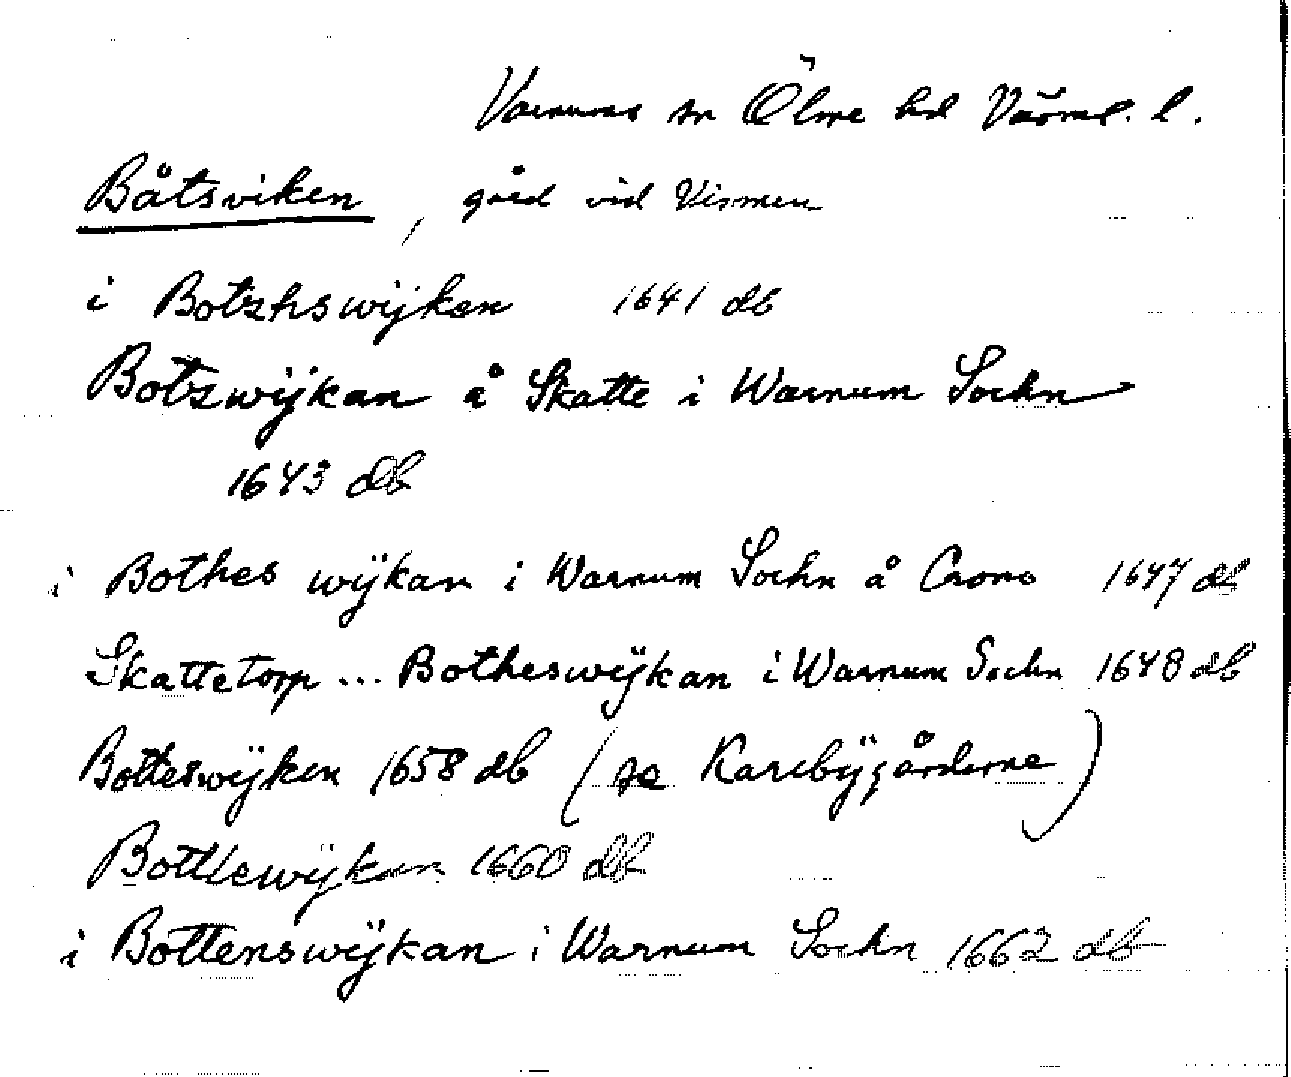 Varnums sn Ölme hd Värml. l.
Båtsviken, gård vid Vismen
i Botzhswijken 1641 db
Botzwijkan å Skatte i Warnum Sochn
1643 db
i Bothes wÿkan i Warnum Sochn å Crono 1647 db
Skattetorp ... Botheswÿkan i Warnum Sochn 1648 db
Botteswÿken 1658 db (se Karebÿgårderne)
Bottlewÿkan 1660 db
i Bottenswÿkan i Warnum Sochn 1662 db